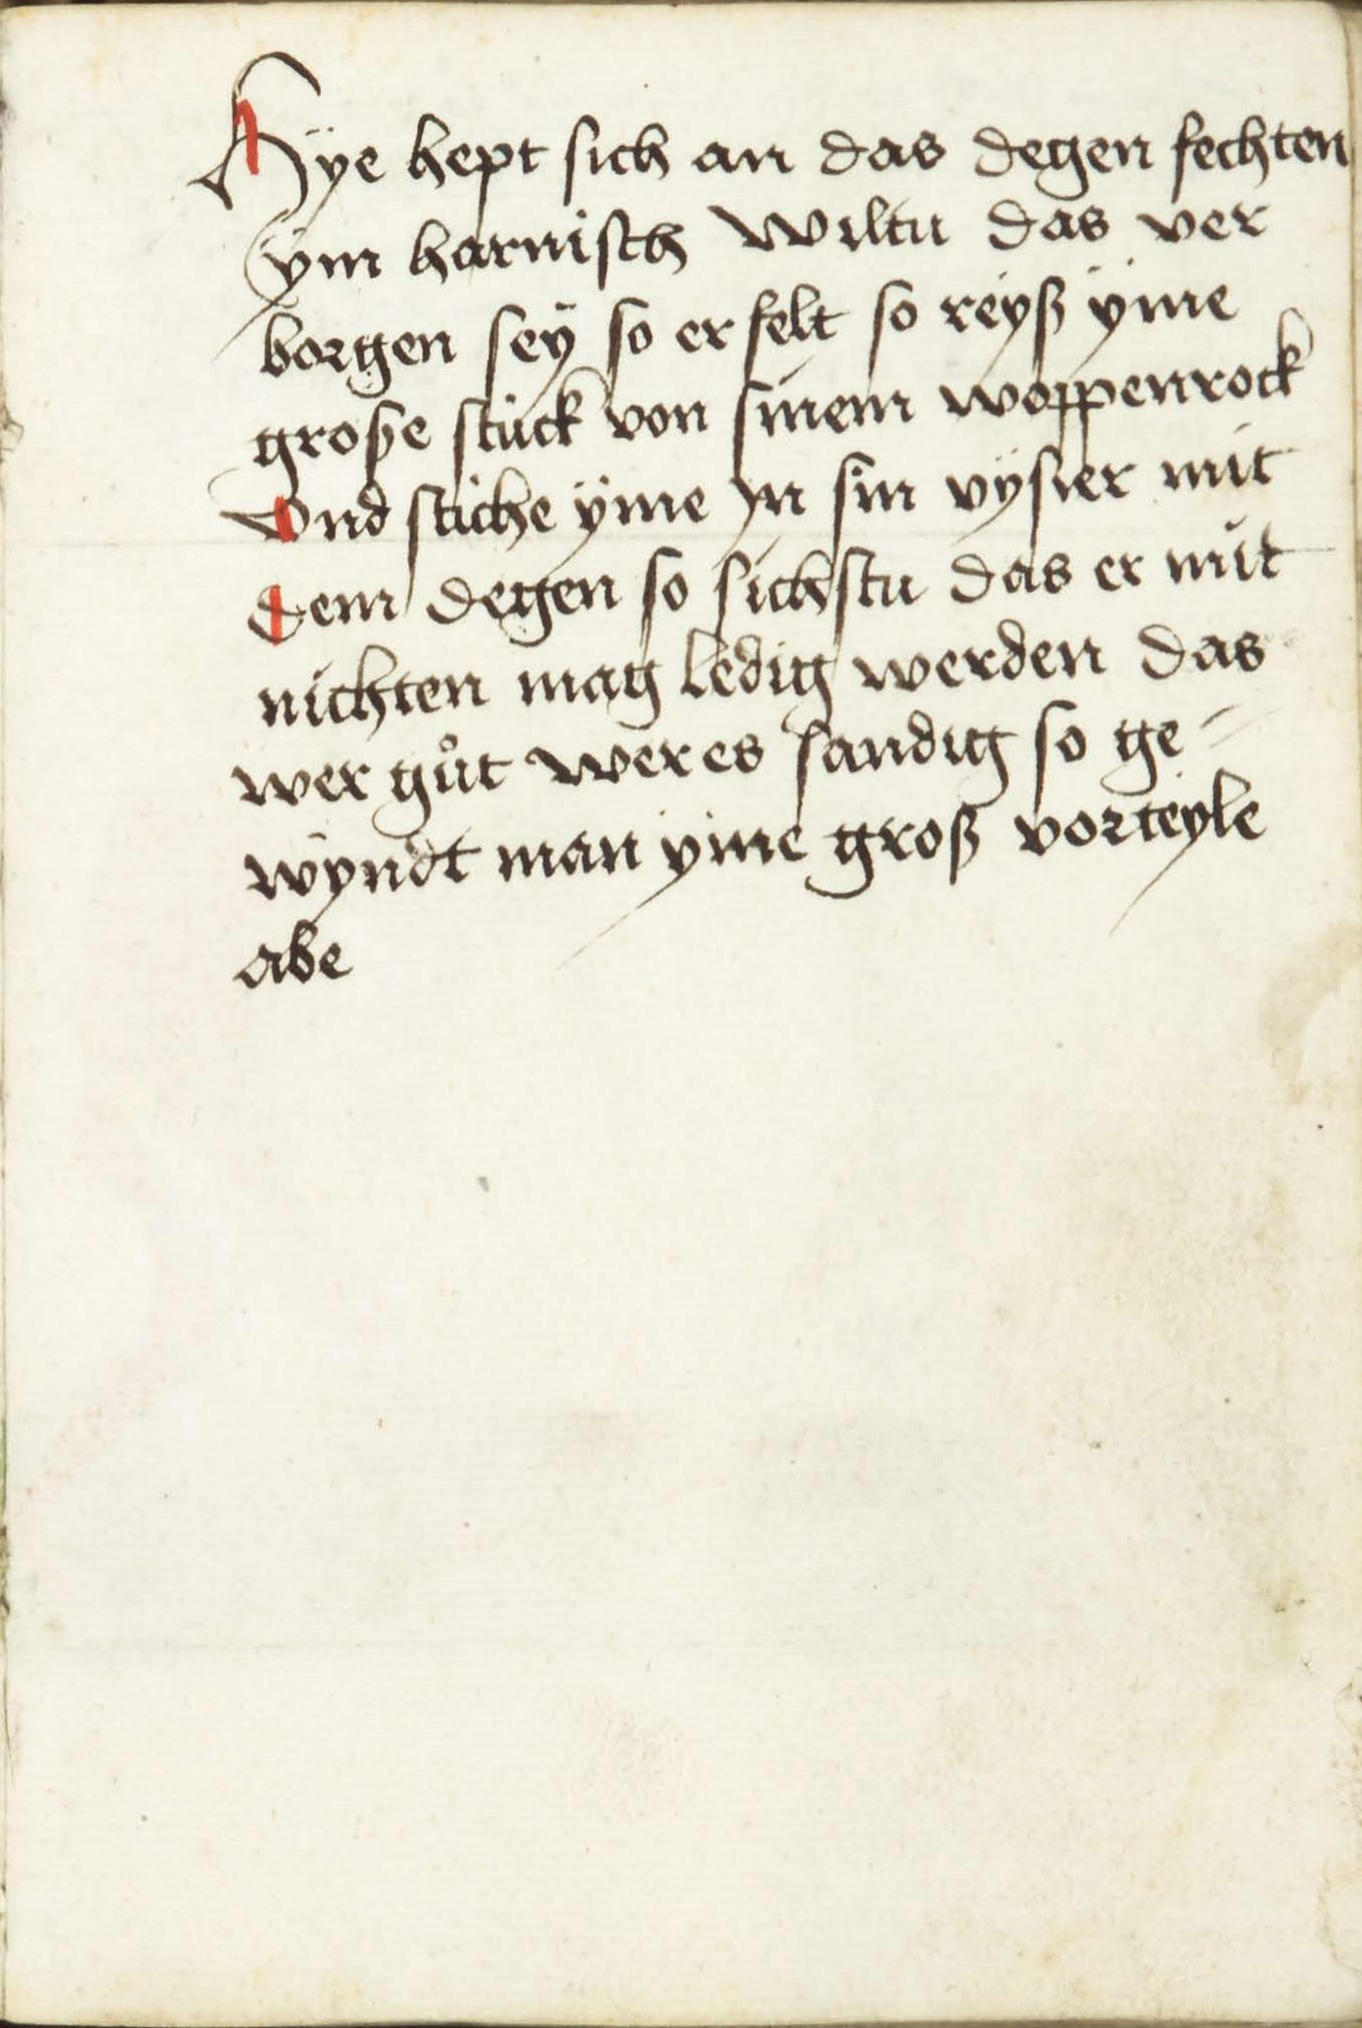 Hÿe hept sich an das degen fechten
ÿm harnisch wiltu das ver
borgen seÿ so er felt so reyß ÿme
große stück von sinem woppenrock
vnd stiche ÿme jn sin vÿsier mit
dem degen so sichstu das er mit
nichten mag ledig werden das
wer gůt wer es sandig so ge-
wÿndt man ÿme groß vorteyle
abe